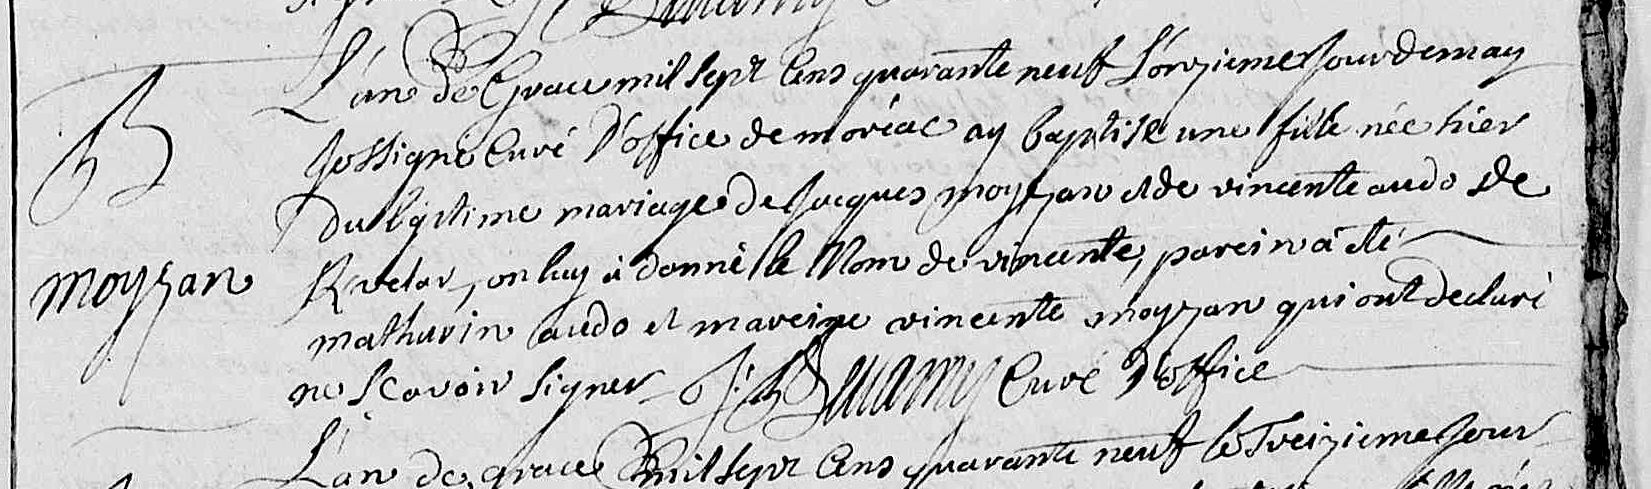 L'an de Grace mil sept Cens quarante neuf L'onzieme Jour de may
Je ssigné Curé D'office de moréac ay baptisé une fille née hier
Du legitime mariage De Jacques moyzan et de vincente audo de
on luy à donné le Nom de vincente, parein à été
moyzan
mathurin audo et mareine vincente moyzan qui ont declaré
ne scavoir signer Curé D'office
L'an de grace mil sept Cens quarante neuf le Treizieme Jour